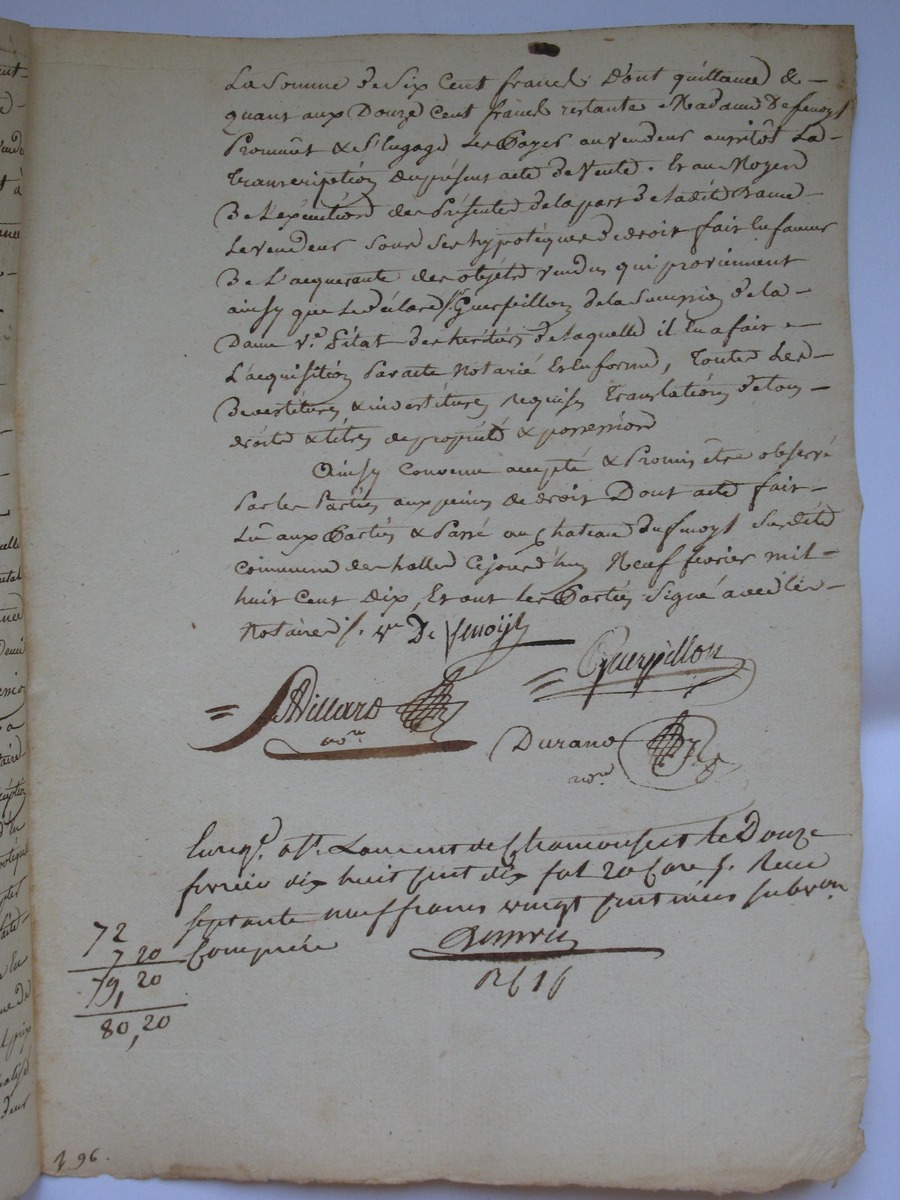 La Somme de Six Cent francs Dont quittance &
quant aux Douze Cent francs restants Madame Defenoyl
Promet & s'Engage Les Payer au vendeur aussitôt La
Transcription du présent acte de Vente. Et au Moyen
De L'exécution des Présentes de la part de ladite Dame
Le vendeur sous ses hypotèques de droit fait En faveur
De L'acquerante des objets vendus qui proviennent
ainsy que Le déclare Sr Guerpillon de la Succession de la
Dame Ve. Pitat des heritiers de Laquelle il En a fait
L'acquisition Par acte Notarié En forme, Toutes Les
Devestitures & investitures requises Translation de tous
droits & titres de propriété & possession
Ainsy Convenu accepté & Promis être observé
Par les Parties aux peines de droit Dont acte fait
Lû aux Parties & Passé au Chateau du fenoyl Sus dité
Commune des halles Cejourd'huy Neuf fevrier mil
huit Cent Dix, Et ont les Parties Signé avec les
Notaires /. ve De fenoÿl
Guerpillon
Villard
nore
Durand
nore
Enregé. a St. Laurent de Chamousset le Douze
fevrier dix huit Cent dix fol 20 Case 5. Recu
septante neuf francs vingt Centimes subvon
Comprise
R 616
72
7 20
79, 20
80, 20
96.